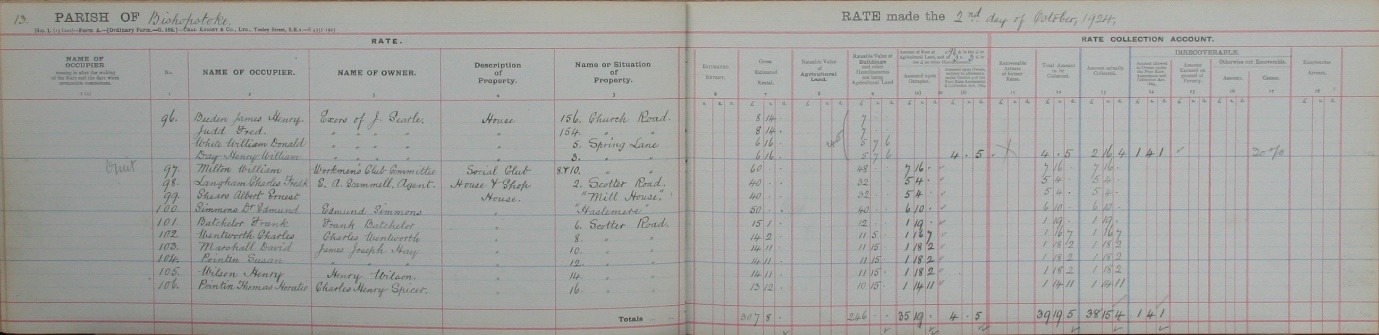 13. PARISH OF Bishopstoke. RATE made the 2nd day of October, 1924,
RATE. RATE COLLECTION ACCOUNT.
NAME OF OCCUPIER
No. NAME OF OCCUPIER. NAME OF OWNER. Description of Property. Name or Situation of Property. ESTIMATED EXTENT. Gross Estimated Rental. Rateable Value of Agricultural Land. Rateable Value of Buildings
IRRECOVERABLE.
96. Beeden James Henry. Exors of J. Searle. House 156. Church Road. 8 14 7
Judd Fred. " " " " 154. " " 8 14 7
White William Donald " " " " 5. Spring Lane 6 16 5 7 6
Day Henry William " " " " 3. " " 6 16 5 7 6 4 . 5 4 . 5 2 16 4 1 4 1
97. Milton William Workmen's Club Committee Social Club 8 & 10. " " 60 48 7 16 7 16 7 16
98. Langham Charles Fredk S. A. Scammell, Agent. House & Shop 2. Scotter Road. 40 32 5 4 5 4 5 4
99. Shears Albert Ernest House. "Mill House". 40 32 5 4 5 4 5 4
100. Simmons Dr Edmund Edmund Simmons " "Haslemere" 50 40 6 10 6 10 6 10
101. Batchelor Frank Frank Batchelor " 6. Scotter Road. 15 1 12 1 19 1 19 1 19
102. Wentworth Charles Charles Wentworth " 8. " " 14 2 11 5 1 16 7 1 16 7 1 16 7
103. Marshall David James Joseph Hay " 10. " " 14 11 11 15 1 18 2 1 18 2 1 18 2
104. Pointin Susan " " " 12. " " 14 11 11 15 1 18 2 1 18 2 1 18 2
105. Wilson Henry Henry Wilson. " 14. " " 14 11 11 15 1 18 2 1 18 2 1 18 2
106. Pointin Thomas Horatio Charles Henry Spicer. " 16. " " 13 12 10 15 1 14 11 1 14 11 1 14 11
Totals 307 8 246 35 19 4 . 5 39 19 5 38 15 4 1 4 1